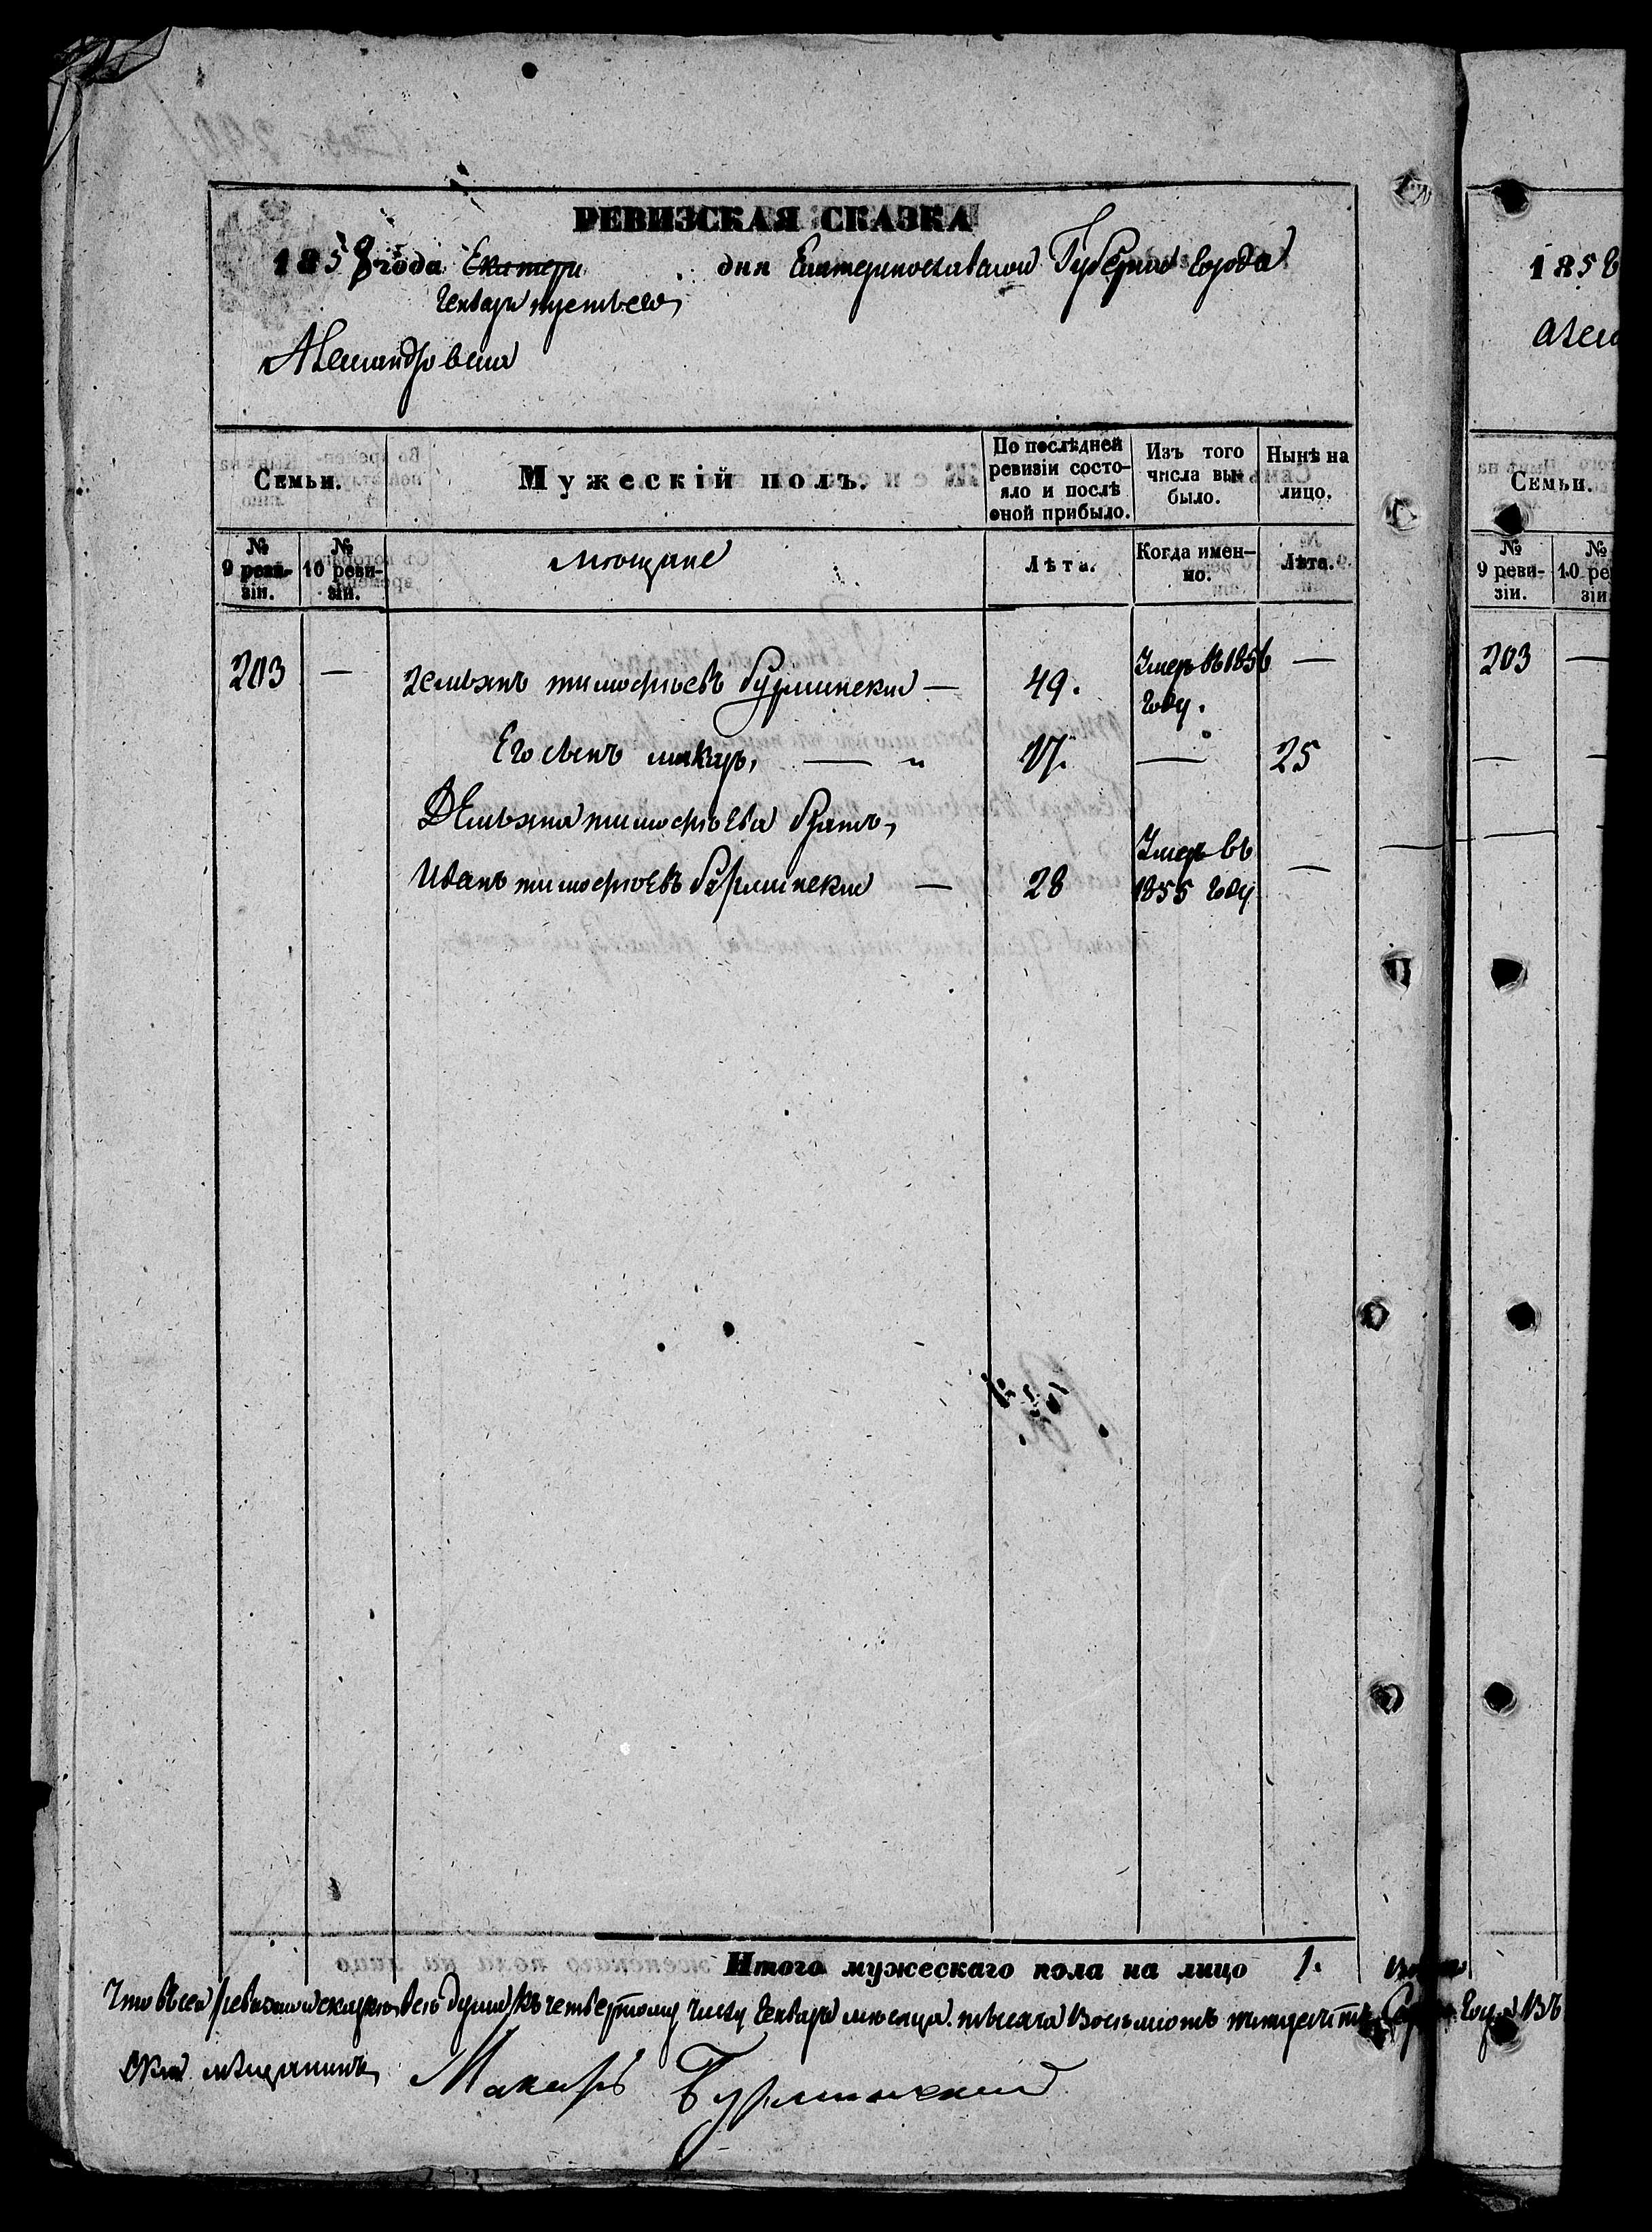 РЕВИЗСКАЯ СКАЗКА
1858 года Екатери дня Екатеринославской Губернии города
Генваря третьего
Александровска
Семьи.
Мужескій полъ.
По послѣдней ревизіи состо-
яло и послѣ
оной прибыло.
Изъ того
числа вы-
было.
Нынѣ на
лицо.
№
9 реви-
зіи.
№
10 реви-
зіи.
мещане
Лѣта.
Когда имен-
но.
Лѣта.
203 — Демьянъ тимофеевъ бурминский — 49. Умер въ 1856 —
году.
Его сынъ макар, — „ 17. — 25
Демьяна тимофеева братъ,
Иванъ тимофеевъ бурминский — 28 Умер въ —
1855 году
Итого мужескаго пола на лицо 1.
Что въ сей ревизской скаске все души къ четвертому числу Генваря месяца тысяча восемсотъ пятидесять
мещанинъ Макаръ Бурминский
1858
Семьи.
№
9 реви-
зіи.
№
10 ре
зіи
203 —
— —